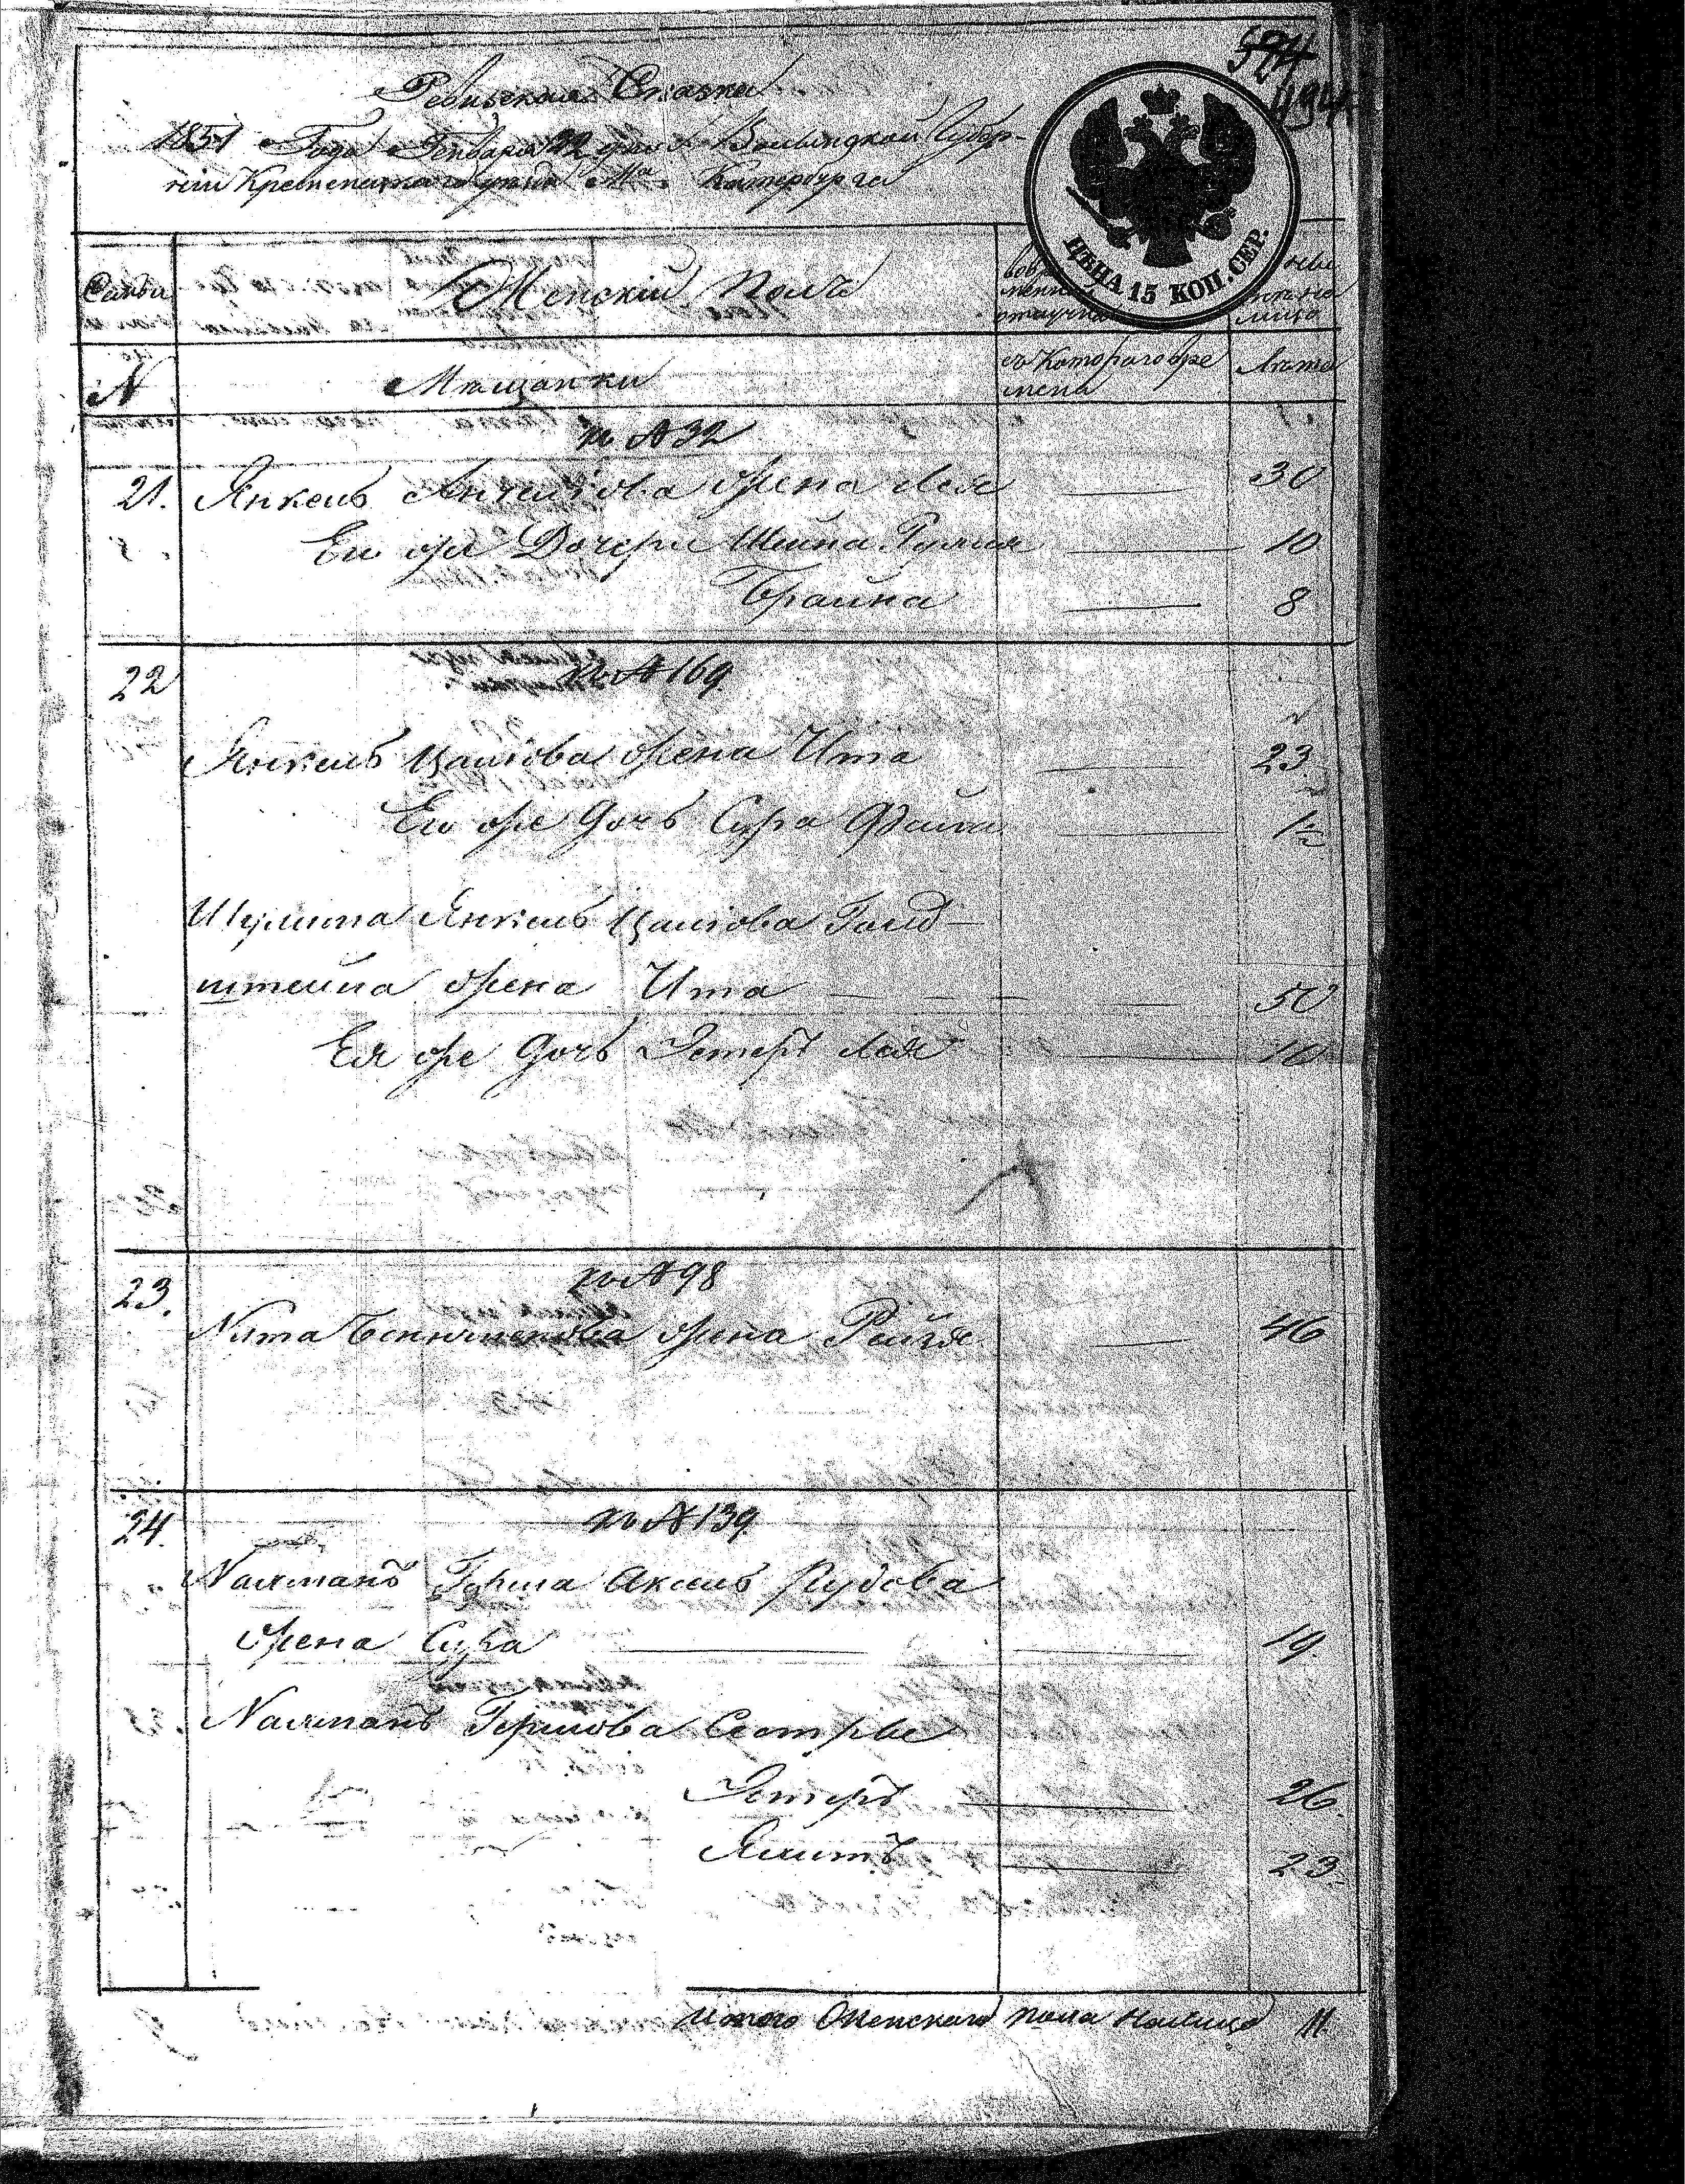 574
494
Ревизская Сказка
1851 Года Генваря 22 дня Волынской Губер-
ніи Кременецкаго уезда Мѣ. Катербурга
ЦѢНА 15 КОП. СЕР.
Семьи
Женскій Полъ
отлучкѣ
лицо
N
Мѣщанки
съ Котораго вре
мени
Лѣта
къ N 32
21. Янкель Анчелiова жена Лея 30
Ею же Дочери Шейна Рухля 10
Брайна 8
22
къ N 169.
Янкель Цалiова жена Ита 23.
Ею же дочь Сура Файга 1½
Шулима Янкель Цалiова Голд-
штейна жена Ита 50
Ея же дочь Эстеръ Лея 10
23.
къ N 98
Нута Беньяменова жена Рейзя 46
24.
къ N 139.
Нахманъ Герша Аксель Рудова
жена Сура 19.
Нахманъ Гершова Сестры
Эстеръ 26.
23.
Итого Женскаго пола Налицо 11.